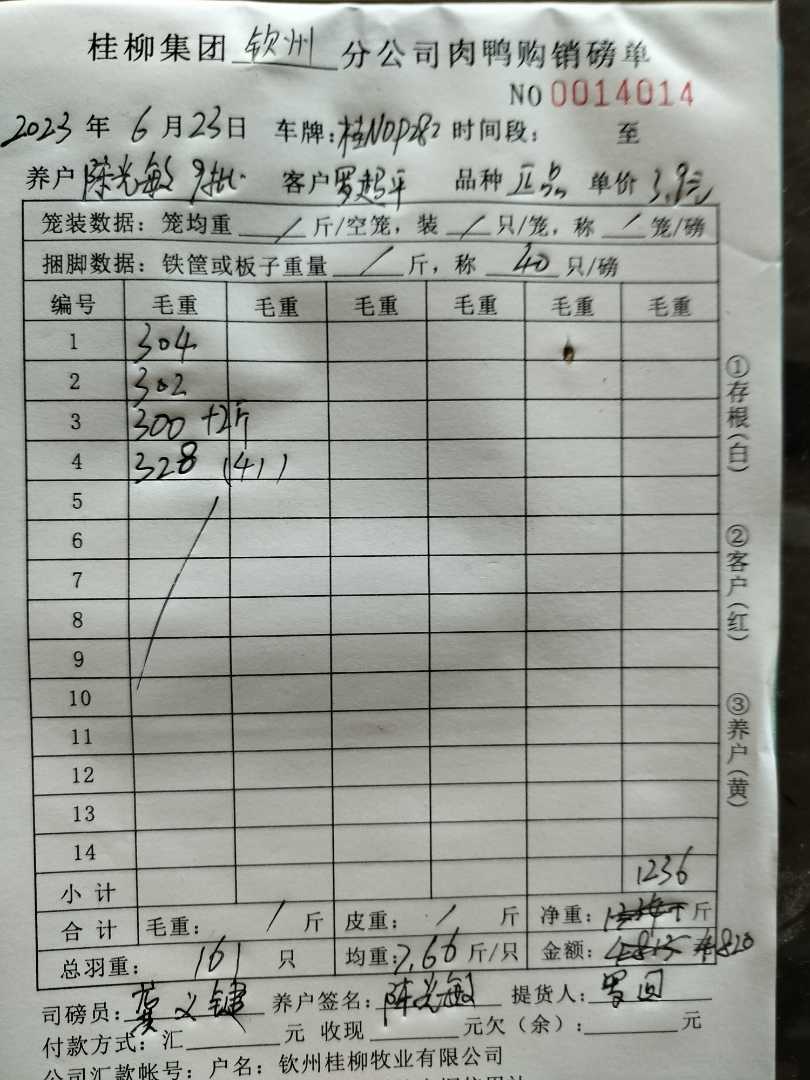 桂柳集团 钦州 分公司肉鸭购销磅单
NO 0014014
2023 年 6 月 23 日 车牌: 时间段: 至
养户 陈光敏 9批 客户 罗超平 品种 正品 单价 3.9元
笼装数据: 笼均重 / 斤/空笼, 装 / 只/笼, 称 / 笼/磅
捆脚数据: 铁筐或板子重量 / 斤, 称 40 只/磅
编号 毛重 毛重 毛重 毛重 毛重 毛重
1 304
2 302
3 300 +2斤
4 328 (41)
5
6
7
8
9
10
11
12
13
14
小计 1236
合计 毛重: / 斤 皮重: / 斤 净重: 斤
总羽重: 161 只 均重: 7.66 斤/只 金额: 4820
司磅员: 龚义键 养户签名: 陈光敏 提货人: 罗
付款方式: 汇 元 收现 元欠(余): 元
公司汇款帐号: 户名: 钦州桂柳牧业有限公司
①存根(白)
②客户(红)
③养户(黄)